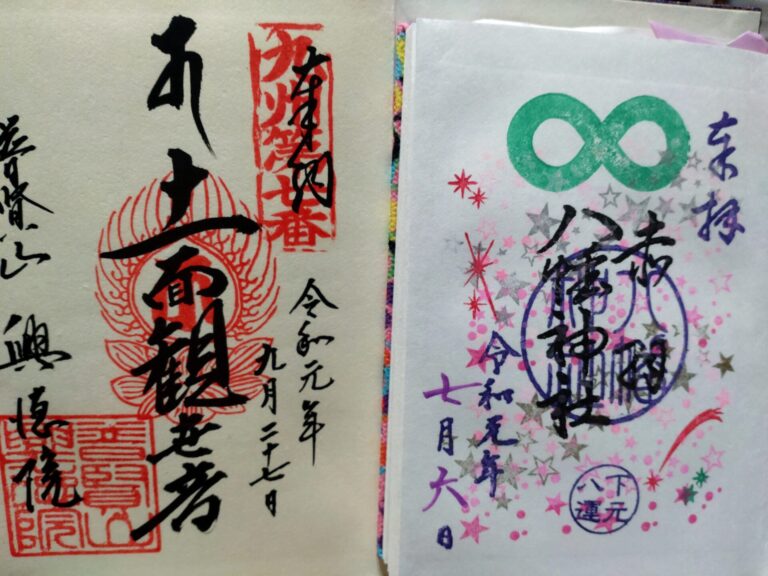 奉拝
赤羽
八幡神社
令和元年
七月六日
下元
八運
九州第七番
奉納
令和元年
九月二十七日
十一面観世音
普賢山 興徳院